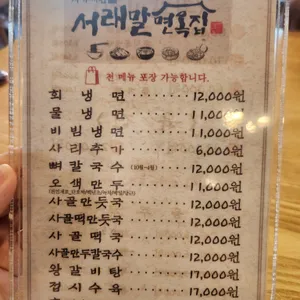 서래말면옥집
전 메뉴 포장 가능합니다.
회냉면 12,000원
물냉면 11,000원
비빔냉면 11,000원
사리추가 6,000원
뼈칼국수 (10월~4월) 12,000원
오색만두 11,000원
사골만둣국 12,000원
사골떡만둣국 12,000원
사골떡국 12,000원
사골만두칼국수 12,000원
왕갈비탕 17,000원
접시수육 17,000원